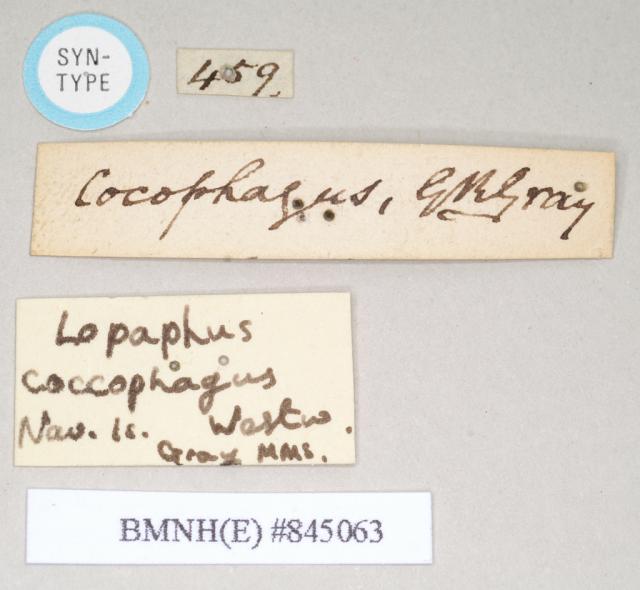 SYN-
TYPE
459.
Cocophagus, GRGray
Lopaphus
coccophagus
Nav. Is. Westw.
Gray MMS.
BMNH(E) #845063